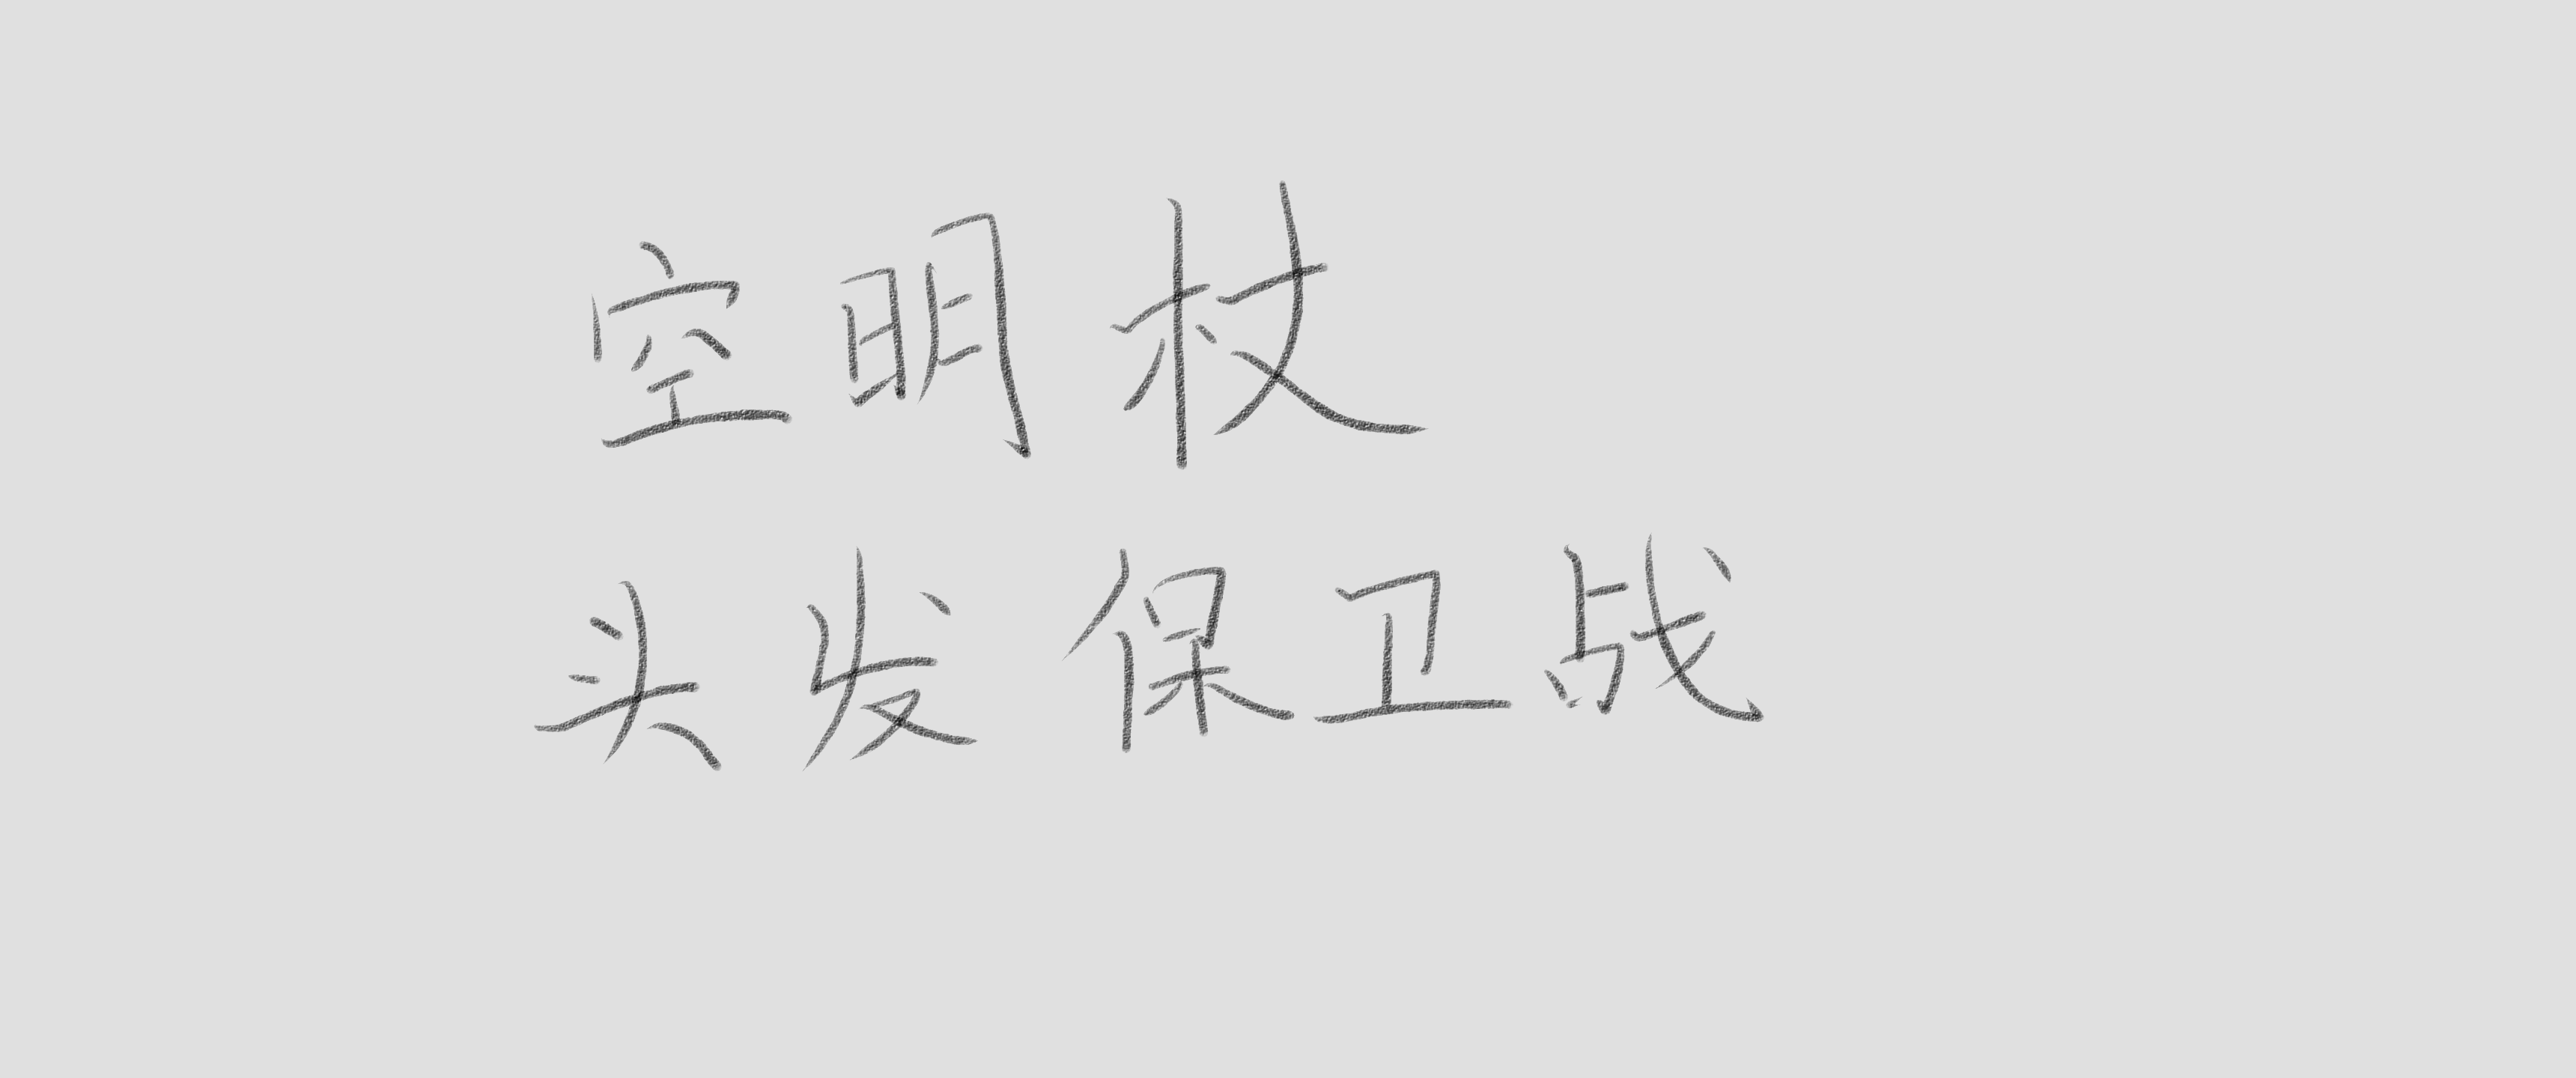 空明杖
头发保卫战